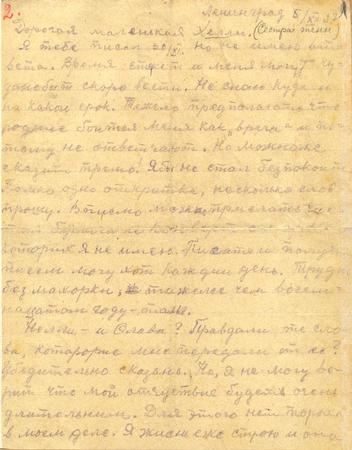 2.
Ленинград 8/XII 37
Дорогая маленькая Хелми. (Сестра жены)
Я тебе писал 20/XI, но не имею отв
вета. Время спешит и меня могут
скоро вести. Не знаю куда и
на какой срок. Тяжело предполагать что
родные боятся меня как „врага" и по-
тому не отвечают. Но можно же
сказать прямо. Я бы не стал безпокоить.
Только одно открытка, несколько слов
прошу. В письмо можно прислать
бумаги и конверт
которих я не имею. Писать и получ
писем могу хот каждий день. Трудно
без махорки, тяжелее чем восем-
надцатом году
Нелли - и Слава? Правда ли те сло
ва, которорие мне передали от ее?
Убедительно сказано. Но, я не могу ве-
рит что мой отсуствие будет очень
длительним. Для этого нет
в моем деле. Я жизн еже строю и она